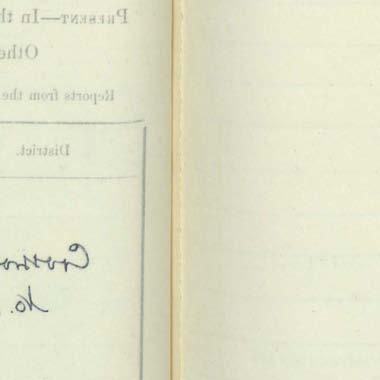 PRESENT—In th
Othe
Reports from the
District.
No.